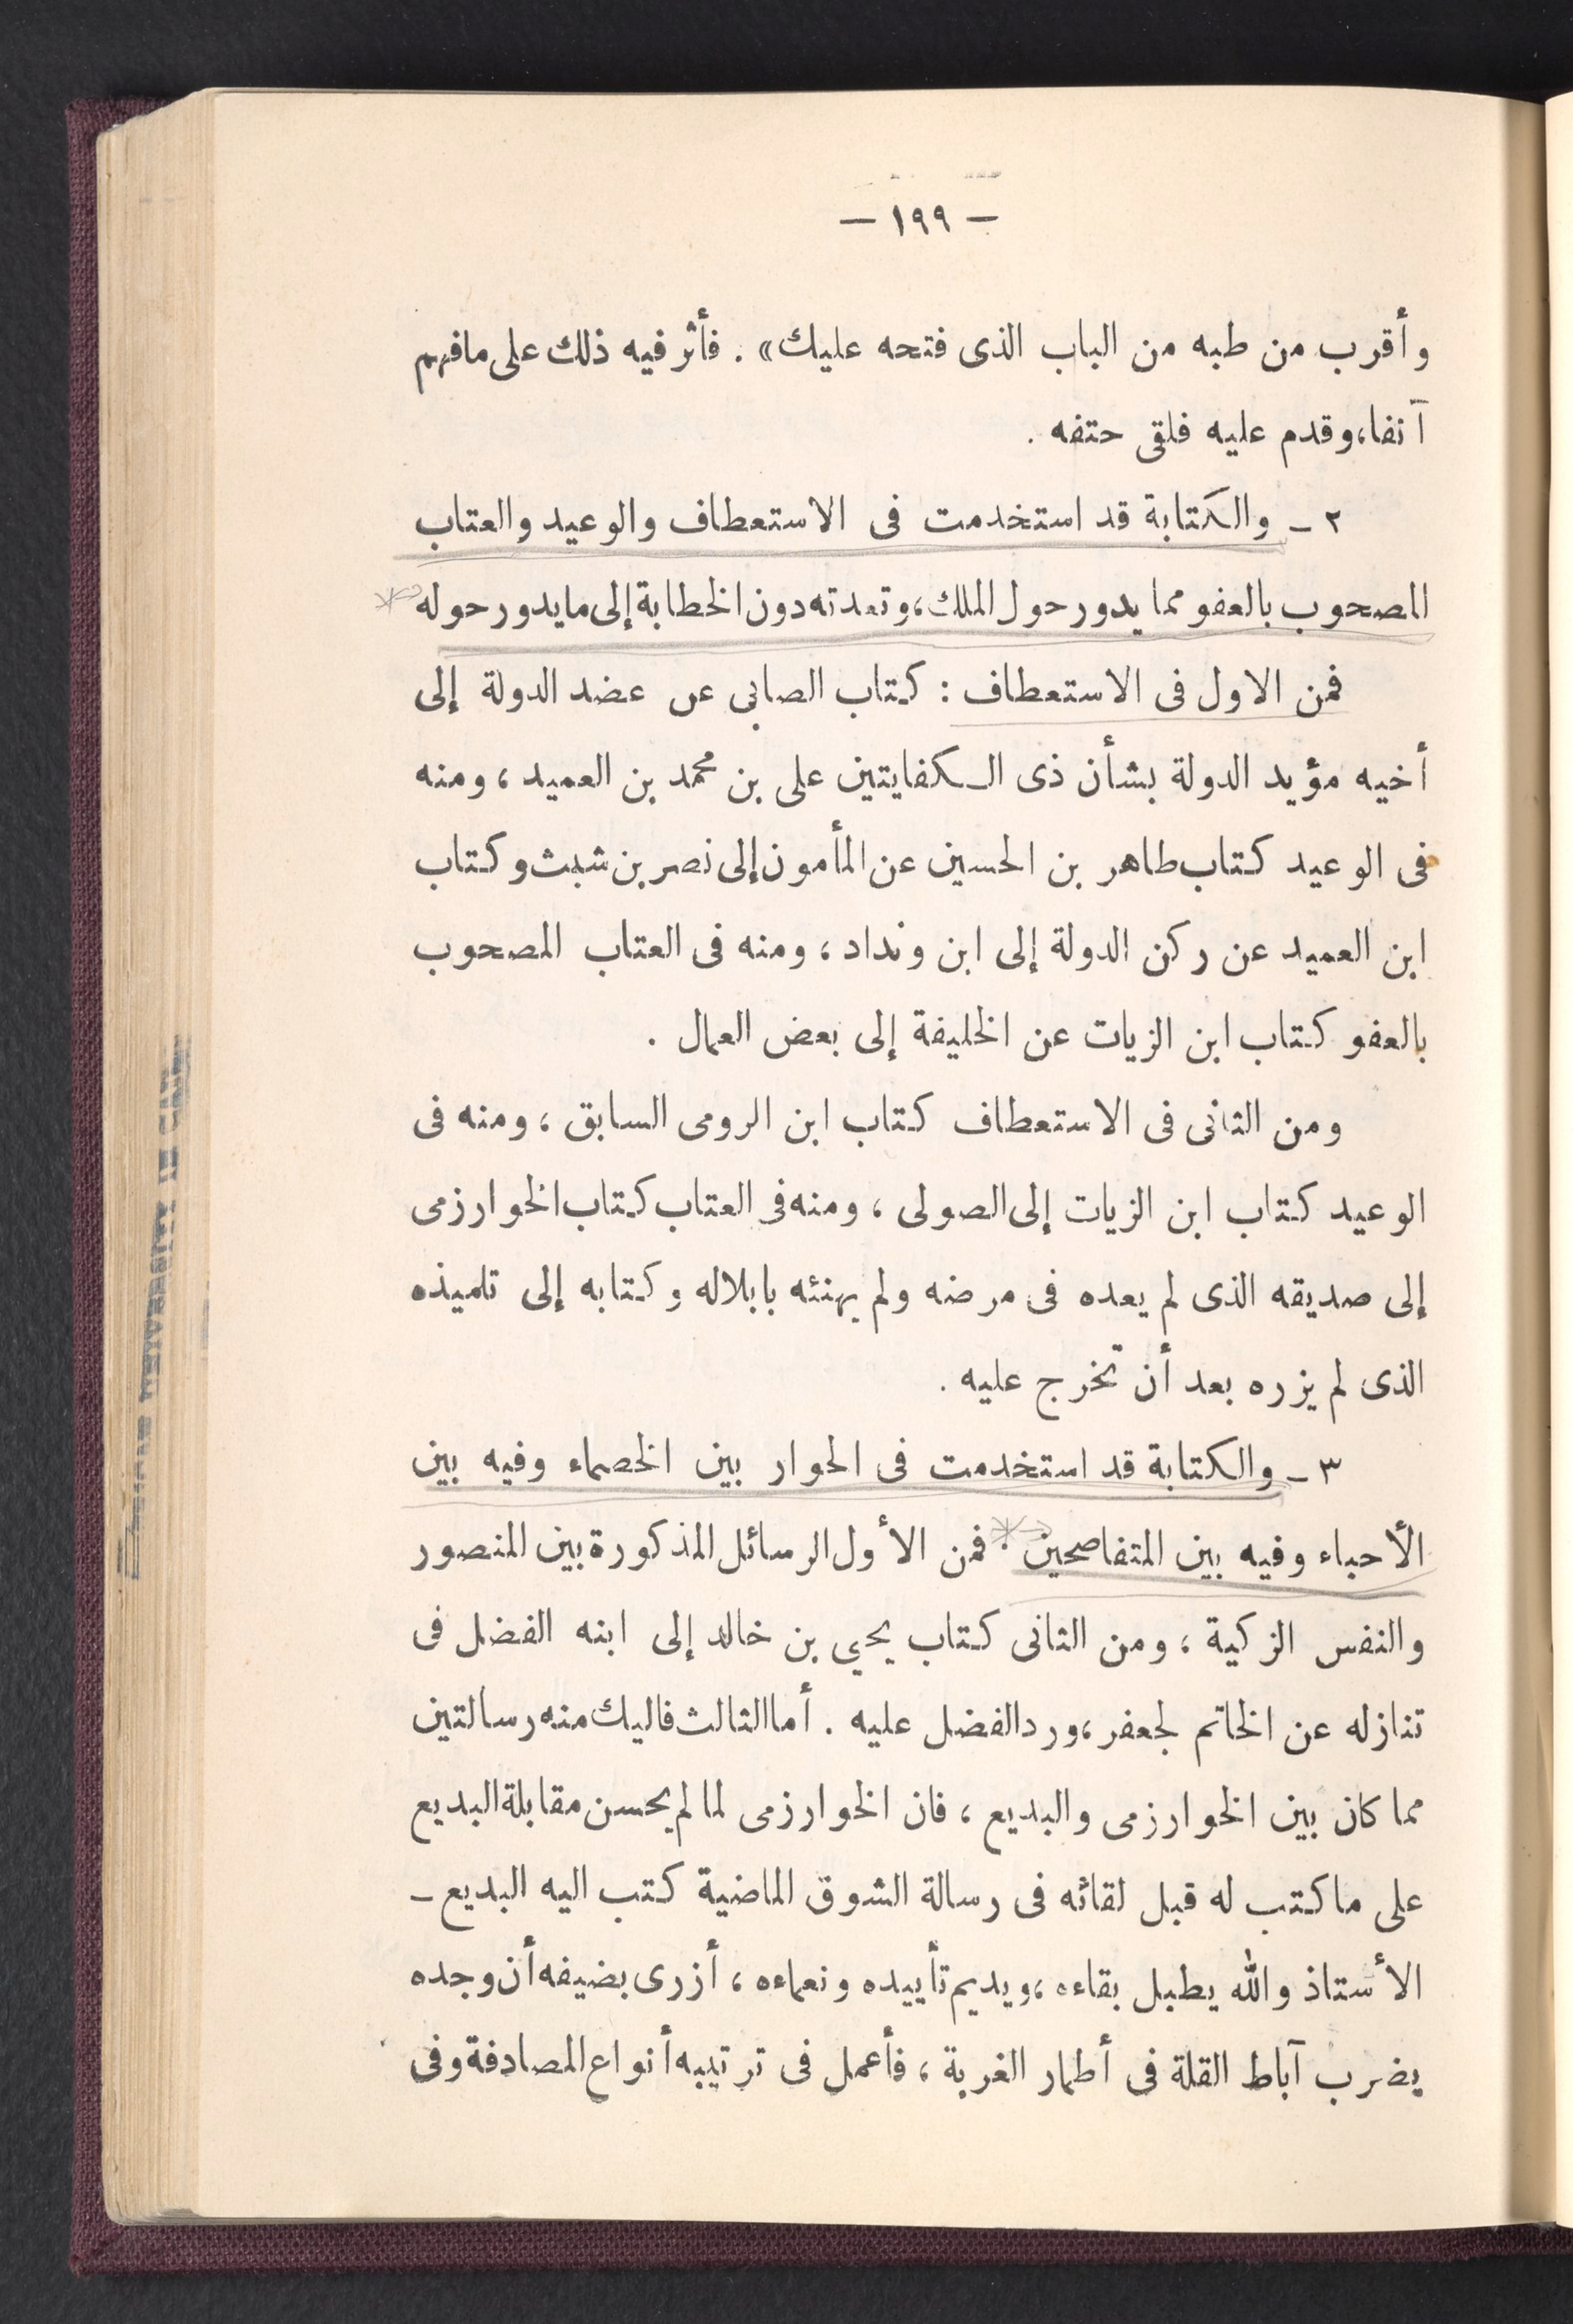 — ١٩٩ —
وأقرب من طبه من الباب الذى فتحه عليك» . فأثر فيه ذلك على مافهم
آنفا، وقدم عليه فلقى حتفه .
٢ ـ والكتابة قد استخدمت فى الاستعطاف والوعيد والعتاب
المصحوب بالعفو مما يدور حول الملك، وتعدته دون الخطابة إلى مايدور حوله
فمن الاول فى الاستعطاف : كتاب الصابى عن عضد الدولة إلى
أخيه مؤيد الدولة بشأن ذى الكفايتين على بن محمد بن العميد ، ومنه
فى الوعيد كتاب طاهر بن الحسين عن المأمون إلى نصر بن شبث وكتاب
ابن العميد عن ركن الدولة إلى ابن ونداد ، ومنه فى العتاب المصحوب
بالعفو كتاب ابن الزيات عن الخليفة إلى بعض العمال .
ومن الثانى فى الاستعطاف كتاب ابن الرومى السابق ، ومنه فى
الوعيد كتاب ابن الزيات إلى الصولى ، ومنه فى العتاب كتاب الخوارزمى
إلى صديقه الذى لم يعده فى مرضه ولم يهنئه بابلاله وكتابه إلى تلميذه
الذى لم يزره بعد أن تخرج عليه .
٣ ـ والكتابة قد استخدمت فى الحوار بين الخصماء وفيه بين
الأحباء وفيه بين المتفاصحين . فمن الأول الرسائل المذكورة بين المنصور
والنفس الزكية ، ومن الثانى كتاب يحيى بن خالد إلى ابنه الفضل فى
تنازله عن الخاتم لجعفر، ورد الفضل عليه . أما الثالث فاليك منه رسالتين
مما كان بين الخوارزمى والبديع ، فان الخوارزمى لما لم يحسن مقابلة البديع
على ما كتب له قبل لقائه فى رسالة الشوق الماضية كتب اليه البديع ـ
الأستاذ والله يطيل بقاءه ، ويديم تأييده ونعماءه ، أزرى بضيفه أن وجده
يضرب آباط القلة فى أطمار الغربة ، فأعمل فى ترتيبه أنواع المصادفة وفى